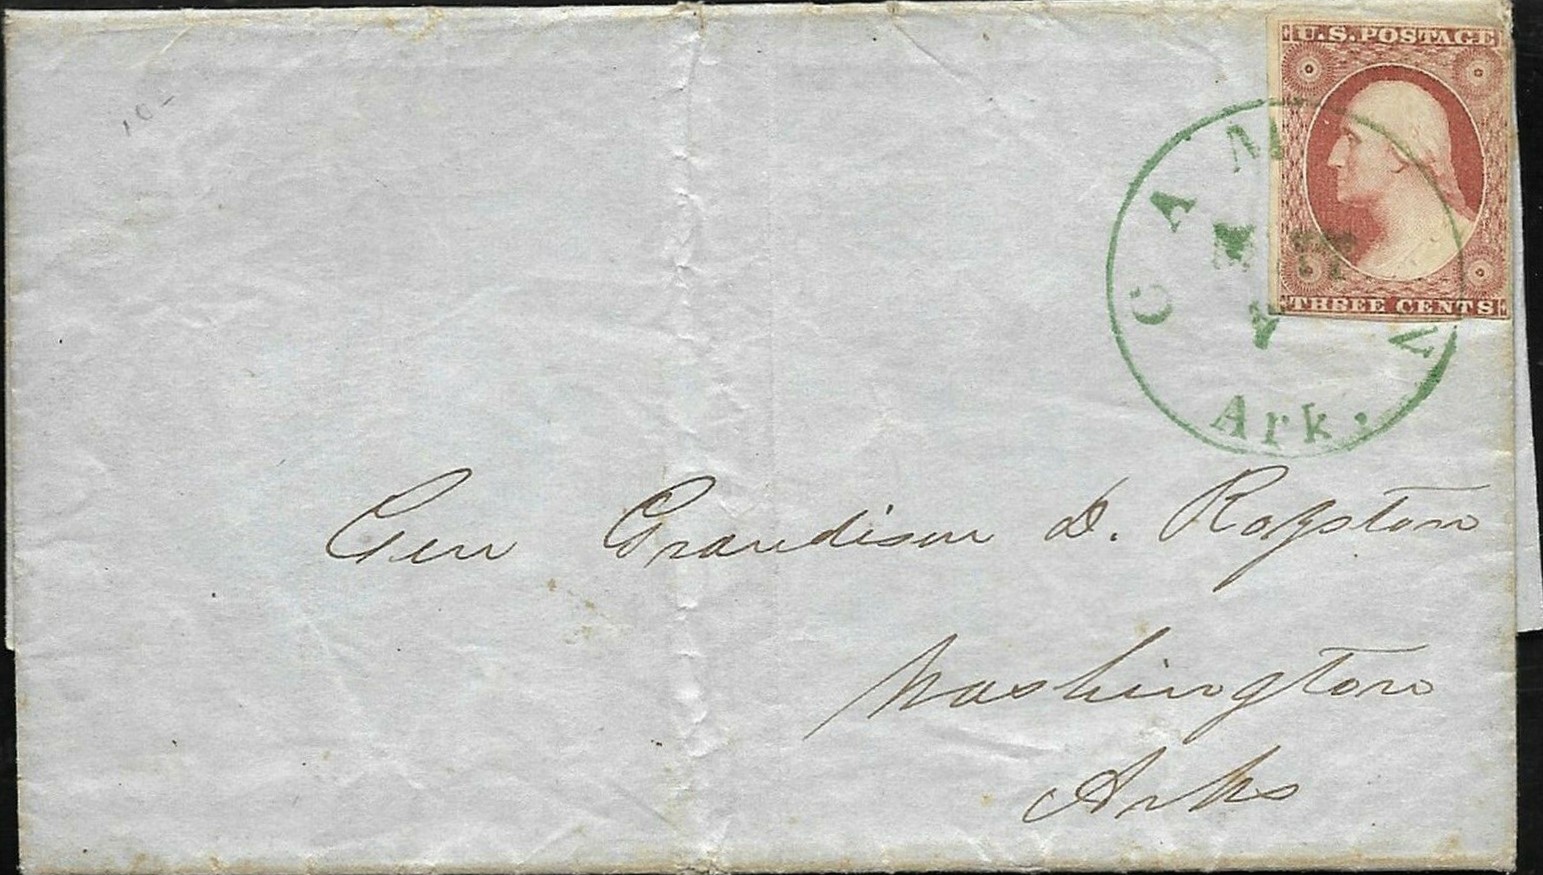 10-
U.S. POSTAGE
THREE CENTS
CAM N
Ark.
Gen Grandison D. Royston
Washington
Arks